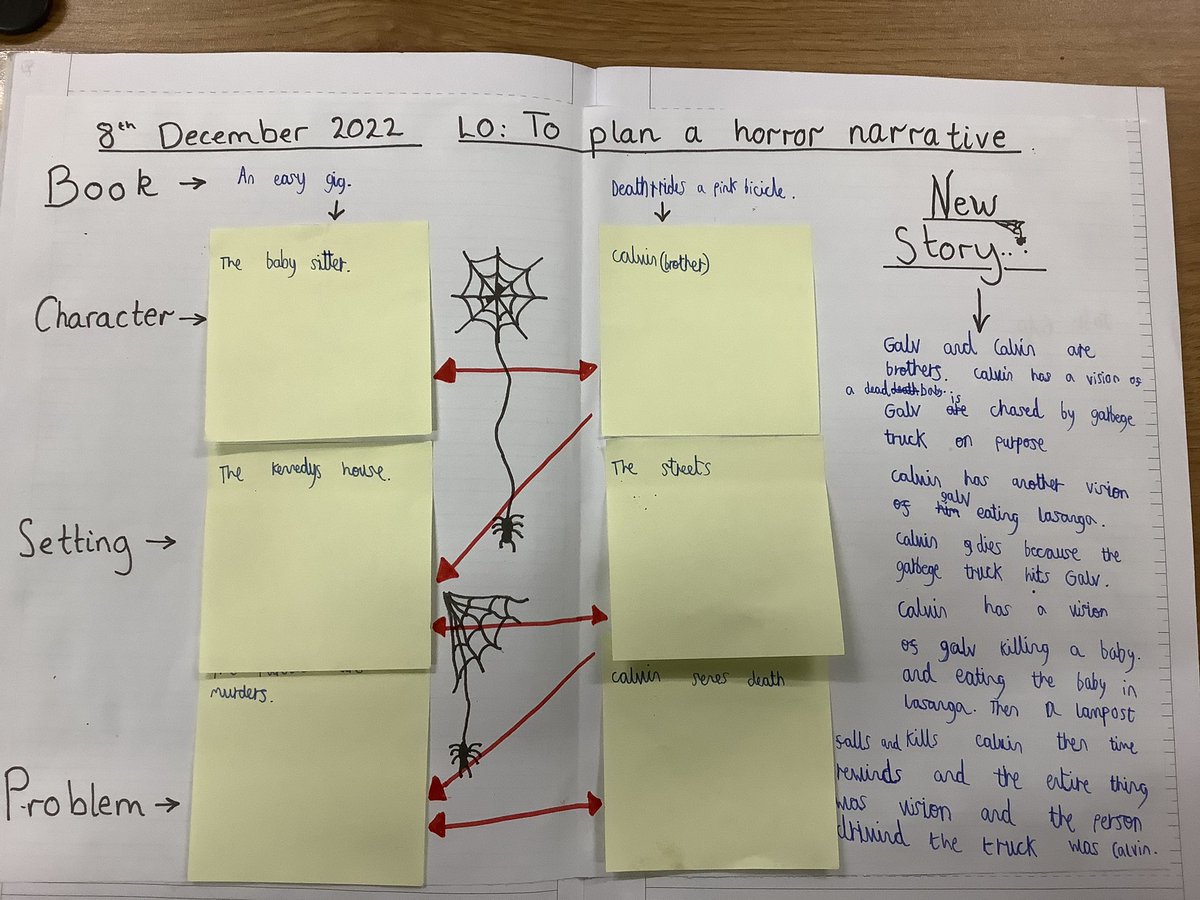 8th December 2022 LO: To plan a horror narrative
Book → An easy gig.
Death rides a pink bicicle.
Character →
The baby sitter.
Calvin (brother)
Setting →
The Kenedys house.
The streets
Problem →
murders.
Calvin death
New
Story...
Galv and Calvin are
brothers. Calvin has a vision of
a dead death baby.
Galv is are chased by gabbege
truck on purpose
Calvin has another vision
of galv him eating lasanga.
Calvin dies because the
gabbege truck hits Galv.
Calvin has a vision
of galv killing a baby.
and eating the baby in
lasanga. Then a lampost
falls and kills calvin then time
rewinds and the entire thing
was vision and the person
the truck was Calvin.